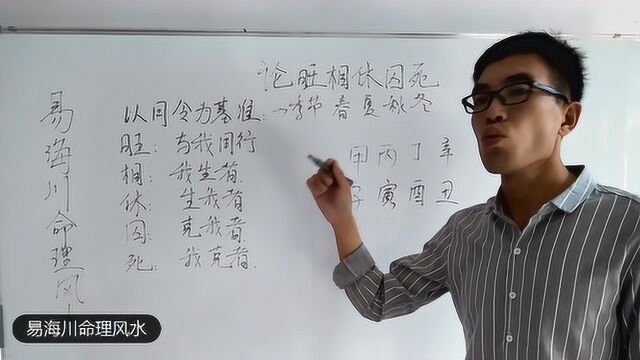 论旺相休囚死
易海川命理风
以月令为基准:→季节 春夏秋冬
旺: 与我同行
相: 我生者.
休: 生我者.
囚: 克我者.
死: 我克者.
甲丙丁辛
子寅酉丑
易海川命理风水